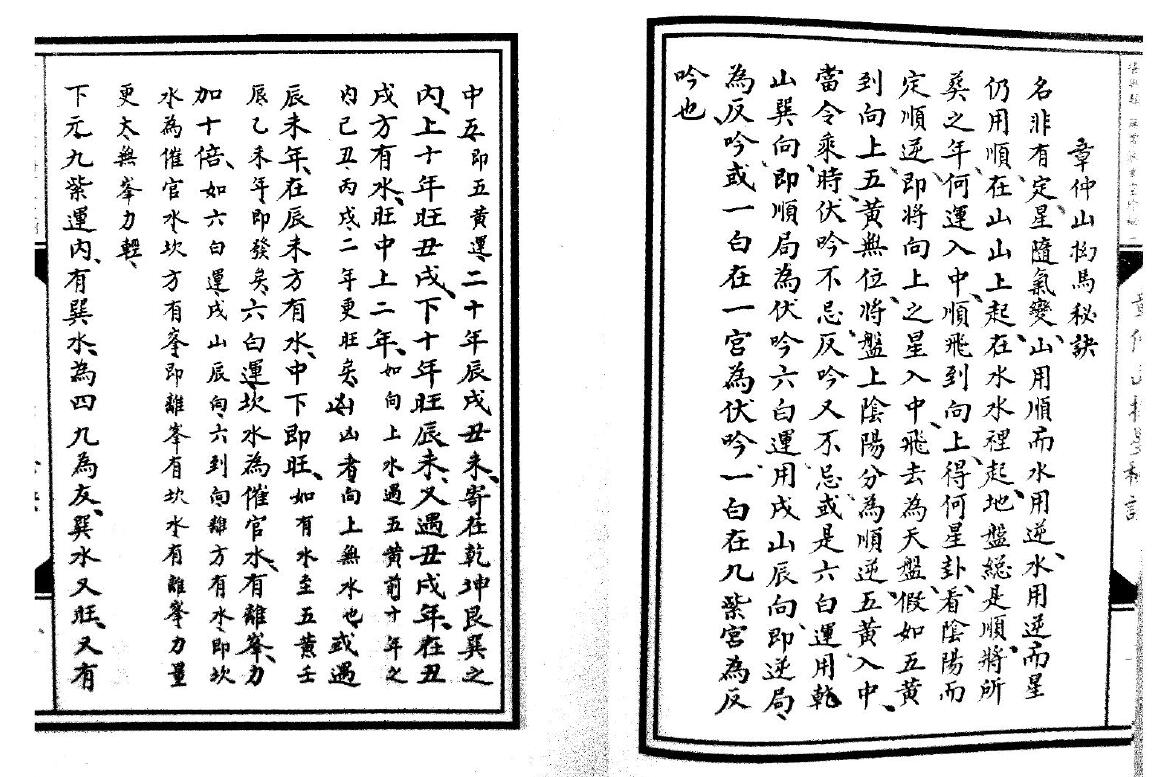 章仲山挨星秘訣
名非有定星隨氣變、山用順而水用逆、水用逆而星
仍用順在山山上起、在水水裡起、地盤總是順將所
葬之年何運入中、順飛到向上、得何星卦、看陰陽而
定順逆、即將向上之星入中、飛去為天盤、假如五黃
到向上五黃無位、將盤上陰陽分為順逆、五黃入中、
當令乘時伏吟不忌、反吟又不忌、或是六白運用乾
山巽向、即順局為伏吟六白運用戌山辰向、即逆局、
為反吟或一白在一宮為伏吟一白在九紫宮為反
吟也、
中五、即五黃運、二十年辰戌丑未、寄在乾坤艮巽之
內、上十年旺丑戌、下十年旺辰未、又遇丑戌年、在丑
戌方有水、旺中上二年、如向上水遇五黃前十年之
內己丑、丙戌二年更旺矣、凶者向上無水也、或遇
辰未年、在辰未方有水、中下即旺、如有水至五黃壬
辰乙未年、即發矣、六白運、坎水為催官水、有離峯、力
加十倍、如六白運、戌山辰向、六到向、離方有水、即坎
水為催官水、坎方有峯、即離峯有坎水、有離峯力量
更大無峯力輕、
下元九紫運內、有巽水、為四九為友、巽水又旺、又有